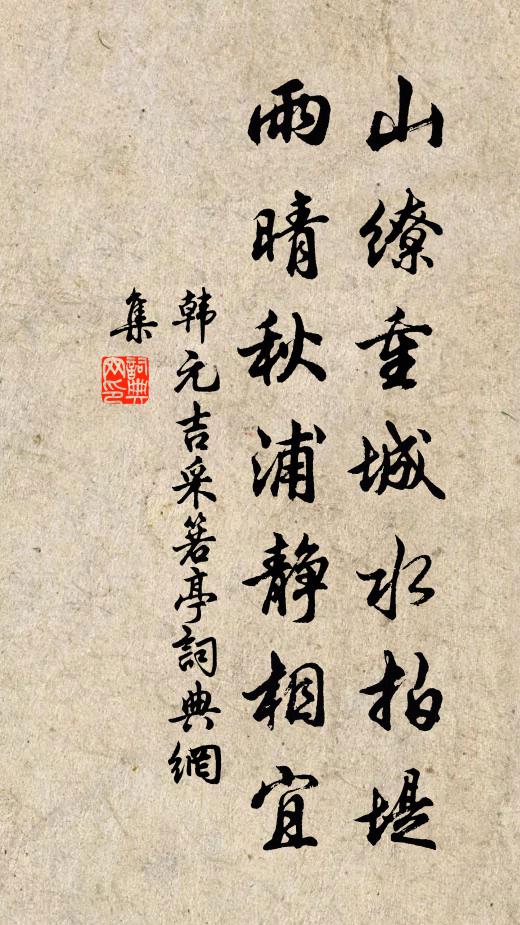 山缭重城水拍堤
雨晴秋浦静相宜
韩元吉采箬亭詞典網
集
詞典網印